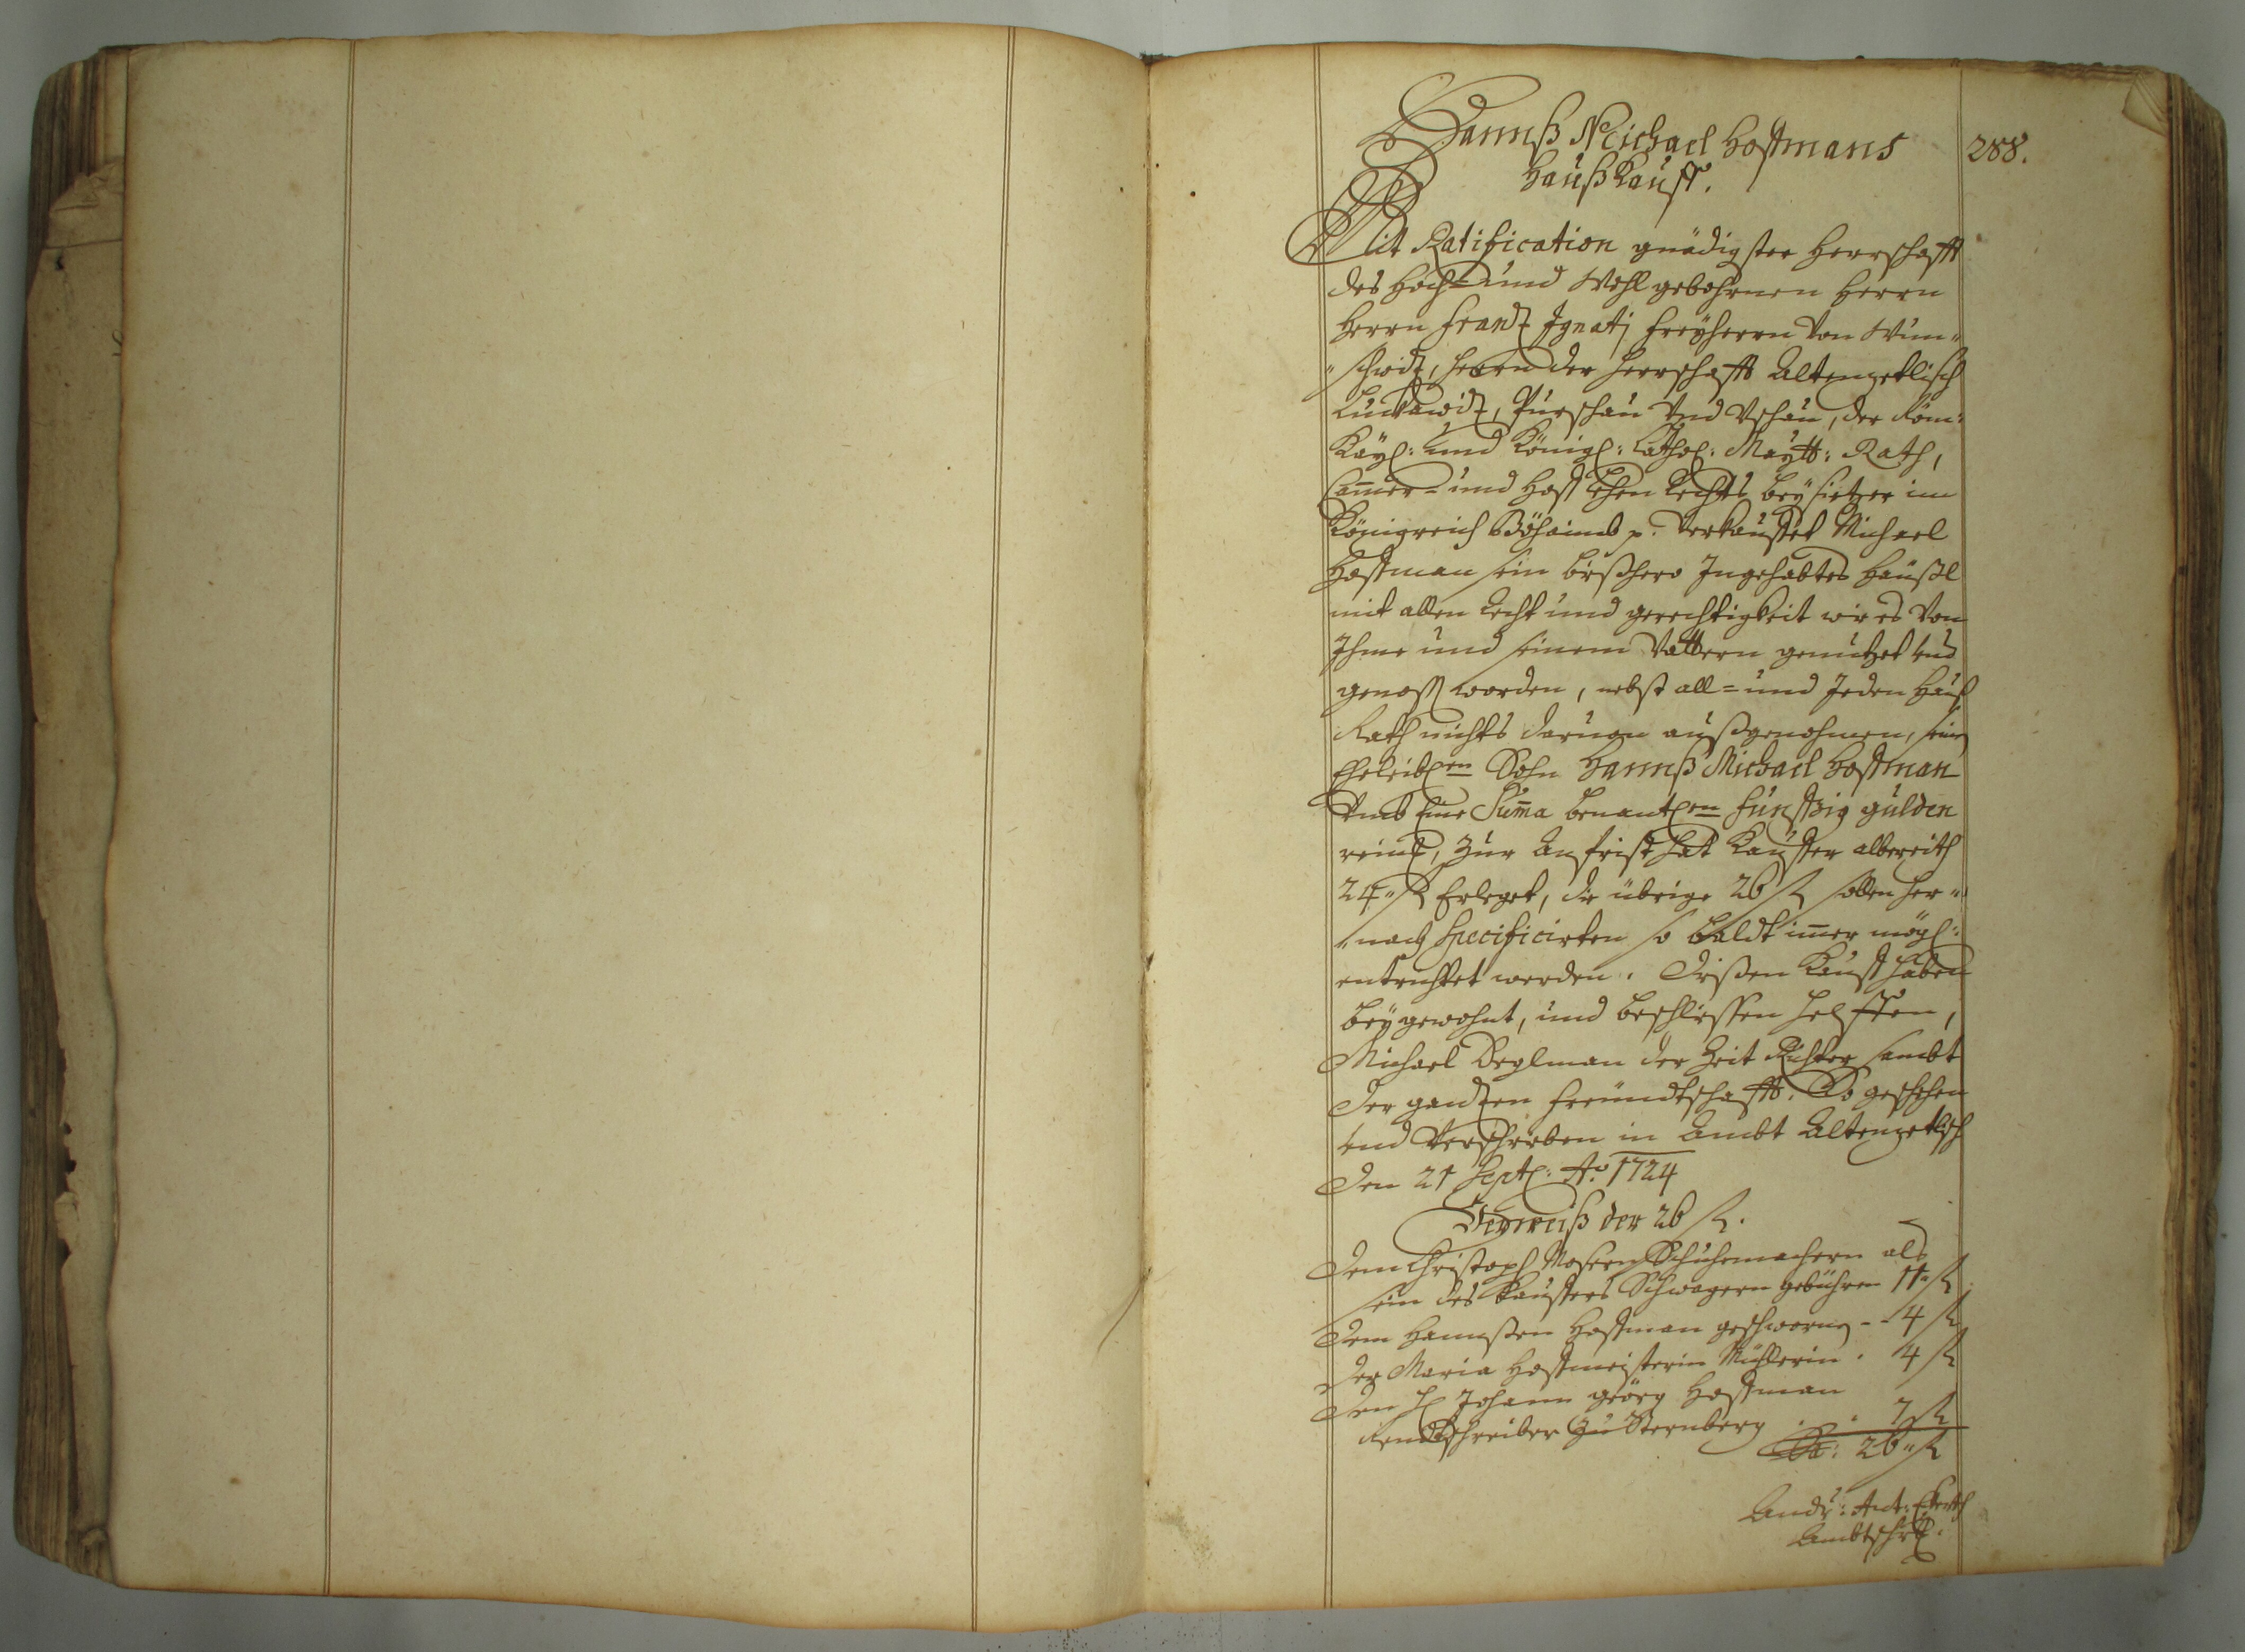 Hannß Michael Hoffmans
288.
Haußkauff.
Mit Ratification gnädigster Herrschafft
des Hoch= und Wohlgebohrnen Herrn
Herrn Frantz Ignatj Freyherrn von Wun=
=schwitz, Herrn der Herrschafft Altenzetlisch
Lukawitz, Purschau Vnd Vschau, der Röm:
Kayl: und Königl: Cathol: Maytt: Rath,
Cammer= und Hoff Lehen Rechts beysietzer im
Königreich Böhaimb p. Verkauffet Michael
Hoffman sein bießhero Ingehabtes Häußl
mit allen Recht und gerechtigkeit wie es von
Ihme und seinem Vattern genutzet und
genoss worden, nebst all= und Jeden Hauß
Rath nichts daruon außgenohmen, seinen
Eheleiblen Sohn Hannß Michael Hoffman
Vmb Eine Summa benantlen Funffzig gulden
reinl, Zur Anfrist hat Kauffer albereith
24" fl Erleget, die übrige 26 fl sollen her=
=nach Specificirten so baldt imer mögl:
entrichtet werden. Dießen Kauff haben
beygewohnt, und beschliessen helffen,
Michael Beglman der Zeit Richter sambt
der gantzen Freundtschafft. So geschehen
und Verschrieben in Ambt Altenzetlsch
den 21 Septl: Ao. 1724
Verweiß der 26 fl.
Dem Christoph Mosern Schuhemachern als
sein des Kauffers Schwagern gebühren 11" fl
Dem Hannßen Hoffman geschworng - - 4 fl
der Maria Hoffmeisterin Müllerin . 4 fl
Den H Johann geörg Hoffman
Rendtschreiber Zu Sternberg . . 7 fl
Sa: 26" fl
Andr: Ant: 
Ambtschrbl.